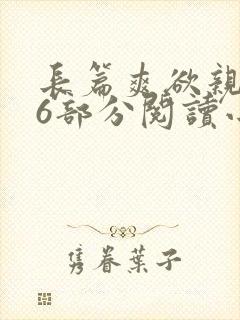 長篇爽欲親
6部分閱讀
隽眷葉子